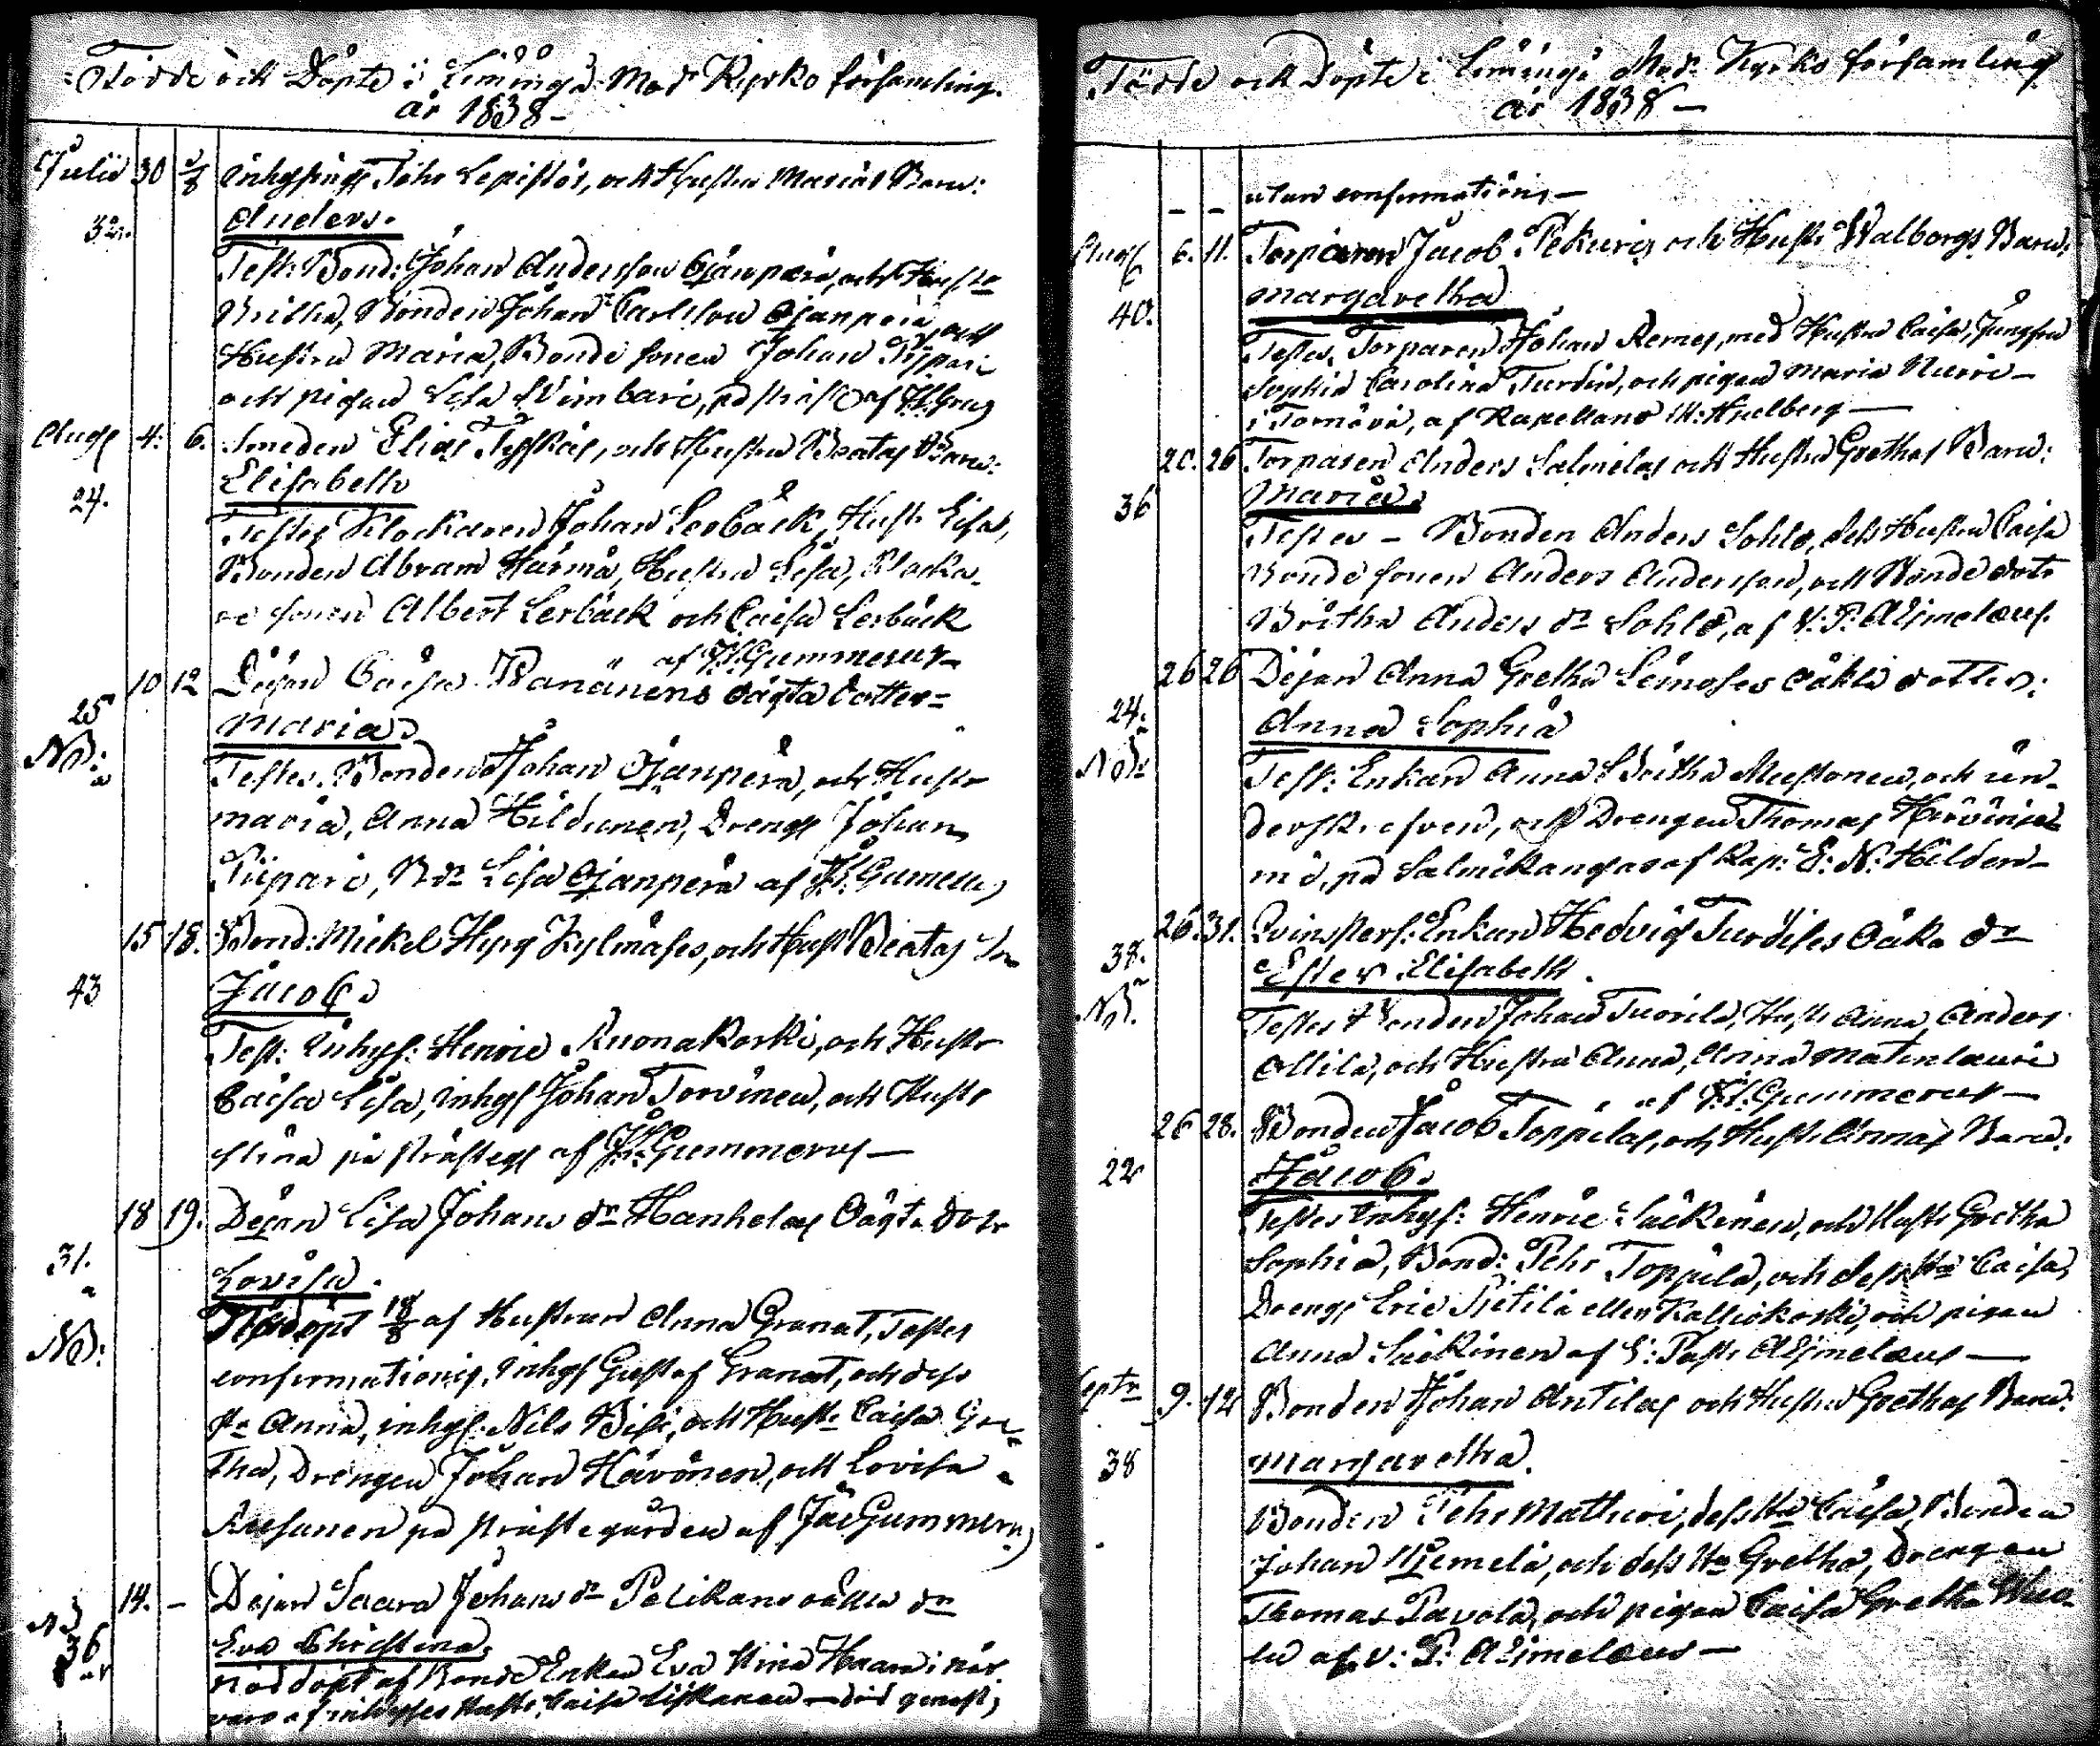 Födde och Döpte i Limingå Mod. Kyrko församling.
år 1838 –
Julii 30 2/8 Inhysings Johs Lepistös, och Hustru Marias Barn:
Anders.
32.
Test: Bond: Johan Andersson Ojanperä, och Hustro
Britha, Bonden Johan Carlsson Ojanperä och
Hustru Maria, Bonde sonen Johan Piipari
och pigan Lisa Wimbari, af
Aug 4. 6. Smeden Elias och Hustru Beatas Barn:
Elisabeth
24.
Testes Klockaren Johan Lerbäck, Hustr Lisa,
Bonden Abram Härmä, Hustru Lisa, Klocka-
re sonen Albert Lerbäck och Caisa Lerbäck
af Gummerus
10 12 Dejan Caisa Wänänens oägta dotter –
25 Maria
NB:
Testes. Bonden Johan Ojanperä, och Hustr
Maria, Anna Hildunen, Dreng Johan
Piipari, Lisa Ojanperä af Gumerus
15 18. Bond: Mickel Hyry Kylmäses, och Hust Beatas Sn
Jacob.
43
Test: Inhys: Henric Kuonakoski, och Hustr
Caisa Lisa, inhys Johan Torvinen, och Hustr
Stina på af Gummerus –
18 19. Dejan Lisa Johans dr Hanhelas Oägta Dotr
31. Lovisa.
Nöddöpt 18/8 af Hustrun Anna Granat, Testes
NB:
confirmationis, Inhys Gustaf Granat, och dess
Anna, inhys: Nils Bisi, och Hustr Caisa Gre-
tha, Drengen Johan Hävönen, och Lovisa
Ansunen på Prästegården af Gummerus
14. – Dejan Saara Johans dr Pelikans oäkta dr
NB
36 Eva Christina.
Nöddöpt af Bonde Enkan Eva Stina Haara i när
varo af inhyses Hustr. Caisa – död genast,
Födde och Döpte i Limingå Mod. Kyrko församling
år 1838 –
– – utan confirmation, –
Aug 6. 11. Torparen Jacob Pekuris och Hustr Walborgs Barn:
Margaretha
40.
Testes, Torparen Johan Remes, med Hustru Caisa, Jungfru
Sophia Carolina Turdin, och pigan Maria Nurri –
i Tornävä, af Kapellans
20. 26 Torparen Anders Salmelas och Hustru Grethas Barn:
36 Maria.
Testes – Bonden Anders Sohlo, dess Hustru Caisa
Bonde sonen Anders Andersson, och Bonde dotr
Britha Anders dr Sohlo, af V: P: Aljmelæus.
26 26 Dejan Anna Gretha Leinoses oäkta dotter:
24. Anna Sophia
NB:
Test: Enkan Anna Britha Mustonen, och un-
derskrefven, och Drengen Thomas
på Salmikangas af Kap: E: N: Hilden –
26. 31. Qvinspers: Enkan Hedvig Turdises Oäkta dr
38. Ester Elisabeth.
NB.
Testes Bonden Johan Tuorila, Hustr Anna, Anders
Ollila, och Hustru Anna, Anna Matinlauri
af Gummerus –
26 28. Bonden Jacob Toppilas, och Hustr Annas Barn:
22 Jacob.
Testes Inhys: Henric Säckinen, och Hustr Gretha
Sophia, Bond: Pehr Toppila, och dess Hu Caisa,
Dreng Eric Pietilä eller Kalliokoski, och pigan
Anna Säckinen af V: Past: Aljmelæus –
Septr 9. 12 Bonden Johan Antilas och Hustru Grethas Barn:
38 Margaretha.
Bonden Pehr Matturi, dess Hu Caisa, Bonden
Johan Niemelä, och dess Hu Gretha, Drengen
Thomas Pavola, och pigan Caisa Gretha
af V: P: Aljmelæus –